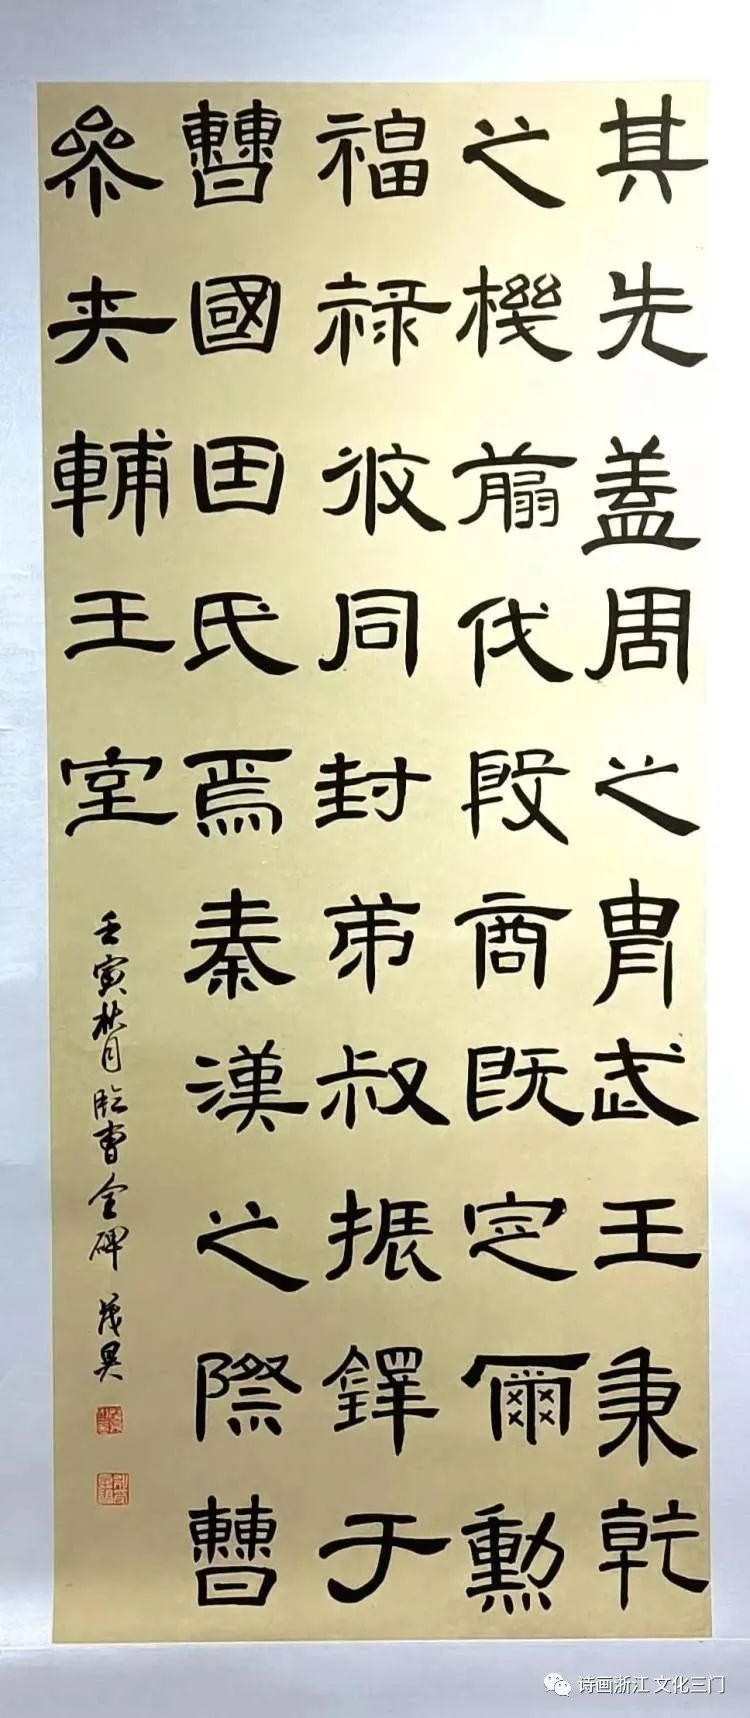 其先蓋周之胄武王秉乾
之機翦伐殷商既定爾勳
福祿攸同封弟叔振鐸于
曹國因氏焉秦漢之際曹
參夾輔王室
壬寅秋月臨曹全碑 茂昊
诗画浙江 文化三门